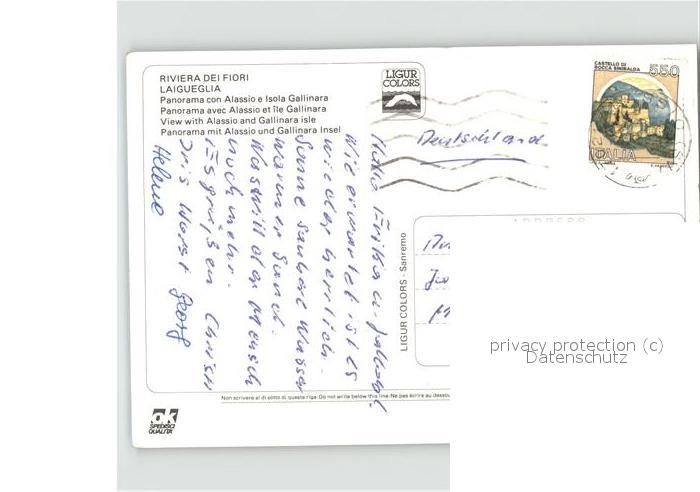 RIVIERA DEI FIORI
LAIGUEGLIA
Panorama con Alassio e Isola Gallinara
Panorama avec Alassio et île Gallinara
View with Alassio and Gallinara isle
Panorama mit Alassio und Gallinara Insel
LIGUR
COLORS
CASTELLO DI
ROCCA SINIBALDA
550
ITALIA
Deutschland
Wie erwartet ist es
wieder herrlich.
Sonne saubere Wasser
warmer Sand.
Was will der Mensch
noch mehr.
Es grüßen Christi
Iris Horst Georg
Helene
LIGUR COLORS - Sanremo
Non scrivere al di sotto di questa riga-Do not write below this line-Ne pas écrire au dessou
ok
SPEDISCI
QUALITA'
privacy protection (c)
Datenschutz